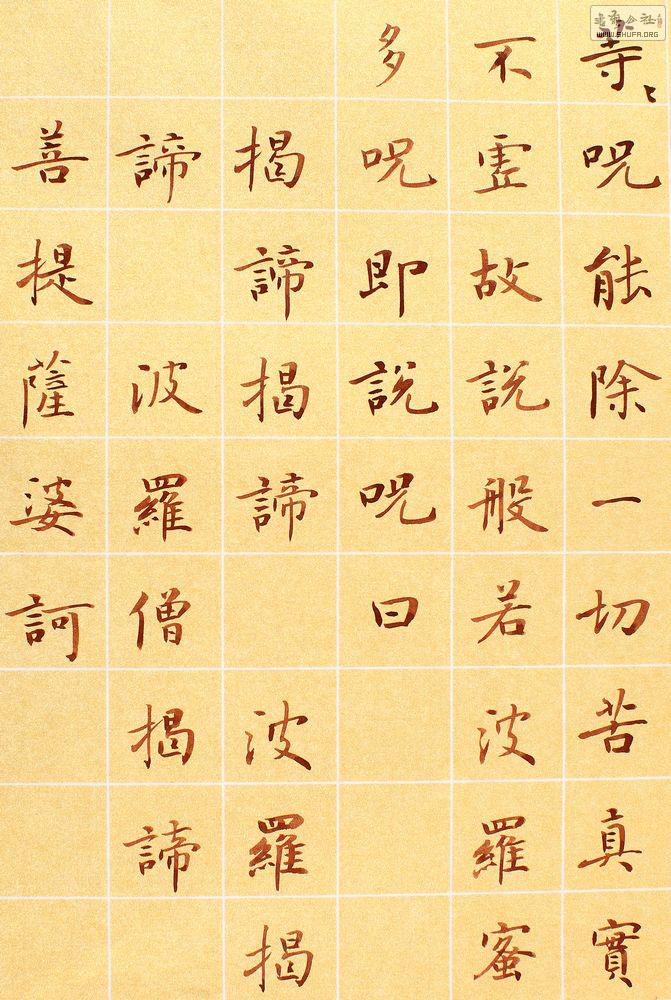 等〻呪能除一切苦真實
不虛故說般若波羅蜜
多呪即說呪曰
揭諦揭諦 波羅揭
諦 波羅僧揭諦
菩提薩婆訶
WWW.SHUFA.ORG